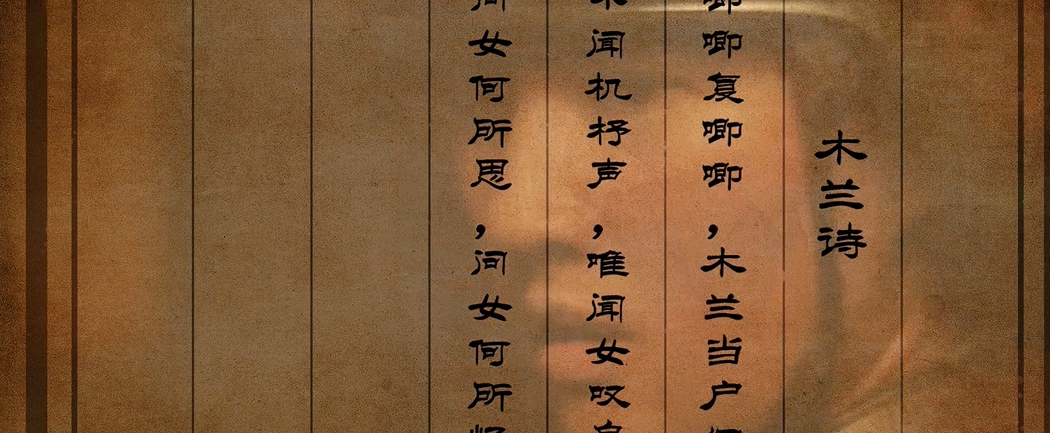 木兰诗
唧复唧唧,木兰当户
闻机杼声,唯闻女叹
问女何所思,问女何所